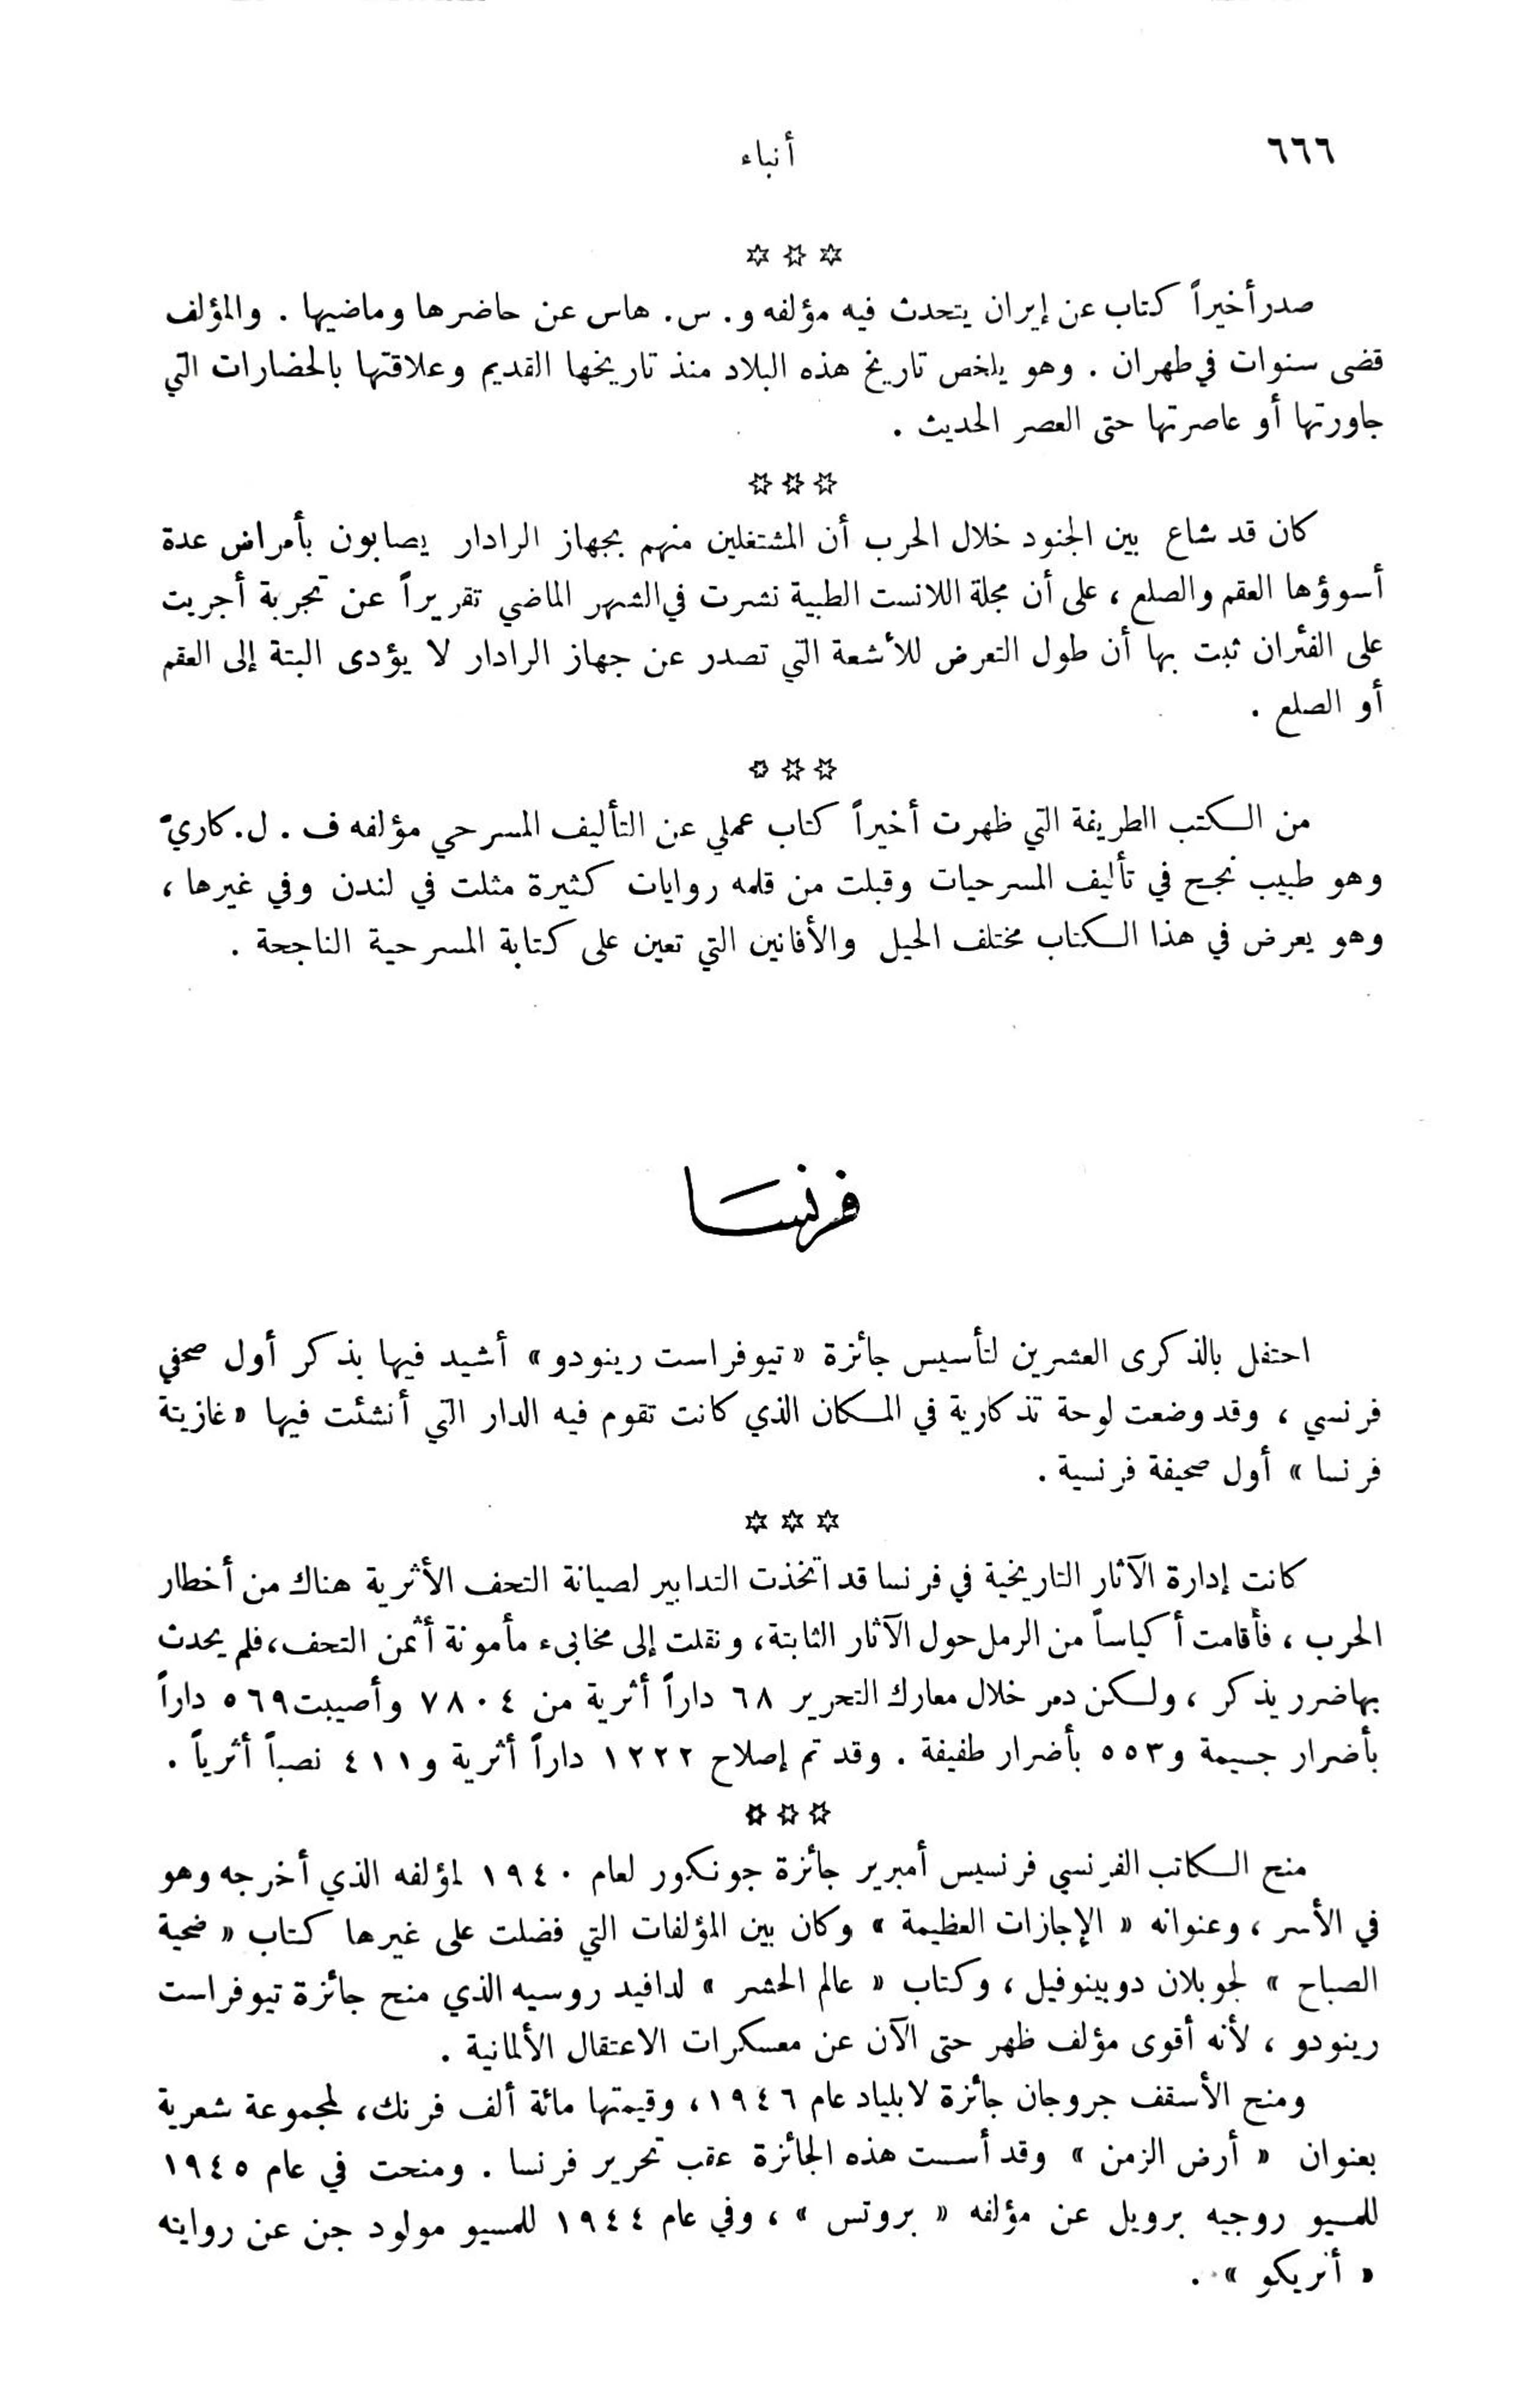 ٦٦٦
أنباء
✡ ✡ ✡
صدر أخيراً كتاب عن إيران يتحدث فيه مؤلفه و. س. هاس عن حاضرها وماضيها . والمؤلف
قضى سنوات في طهران . وهو يلخص تاريخ هذه البلاد منذ تاريخها القديم وعلاقتها بالحضارات التي
جاورتها أو عاصرتها حتى العصر الحديث .
✡ ✡ ✡
كان قد شاع بين الجنود خلال الحرب أن المشتغلين منهم بجهاز الرادار يصابون بأمراض عدة
أسوؤها العقم والصلع ، على أن مجلة اللانست الطبية نشرت في الشهر الماضي تقريراً عن تجربة أجريت
على الفئران ثبت بها أن طول التعرض للأشعة التي تصدر عن جهاز الرادار لا يؤدى البتة إلى العقم
أو الصلع .
✡ ✡ ✡
من الكتب الطريفة التي ظهرت أخيراً كتاب عملي عن التأليف المسرحي مؤلفه ف . ل. كاريّ
وهو طبيب نجح في تأليف المسرحيات وقبلت من قلمه روايات كثيرة مثلت في لندن وفي غيرها ،
وهو يعرض في هذا الكتاب مختلف الحيل والأفانين التي تعين على كتابة المسرحية الناجحة .
فرنسَا
احتفل بالذكرى العشرين لتأسيس جائزة « تيوفراست رينودو » أشيد فيها بذكر أول صحفي
فرنسي ، وقد وضعت لوحة تذكارية في المكان الذي كانت تقوم فيه الدار التي أنشئت فيها « غازيتة
فرنسا » أول صحيفة فرنسية .
✡ ✡ ✡
كانت إدارة الآثار التاريخية في فرنسا قد اتخذت التدابير لصيانة التحف الأثرية هناك من أخطار
الحرب ، فأقامت أكياساً من الرمل حول الآثار الثابتة، ونقلت إلى مخابىء مأمونة أثمن التحف، فلم يحدث
بها ضرر يذكر ، ولكن دمر خلال معارك التحرير ٦٨ داراً أثرية من ٧٨٠٤ وأصيبت ٥٦٩ داراً
بأضرار جسيمة و٥٥٣ بأضرار طفيفة . وقد تم إصلاح ١٢٢٢ داراً أثرية و٤١١ نصباً أثرياً .
✡ ✡ ✡
منح الكاتب الفرنسي فرنسيس أمبرير جائزة جونكور لعام ١٩٤٠ لمؤلفه الذي أخرجه وهو
في الأسر ، وعنوانه « الإجازات العظيمة » وكان بين المؤلفات التي فضلت على غيرها كتاب « ضحية
الصباح » لجوبلان دوبينوفيل ، وكتاب « عالم الحشر » لدافيد روسيه الذي منح جائزة تيوفراست
رينودو ، لأنه أقوى مؤلف ظهر حتى الآن عن معسكرات الاعتقال الألمانية .
ومنح الأسقف جروجان جائزة لابلياد عام ١٩٤٦ ، وقيمتها مائة ألف فرنك، لمجموعة شعرية
بعنوان « أرض الزمن » وقد أسست هذه الجائزة عقب تحرير فرنسا . ومنحت في عام ١٩٤٥
للمسيو روجيه برويل عن مؤلفه « بروتس » ، وفي عام ١٩٤٤ للمسيو مولود جن عن روايته
« أنريكو » .